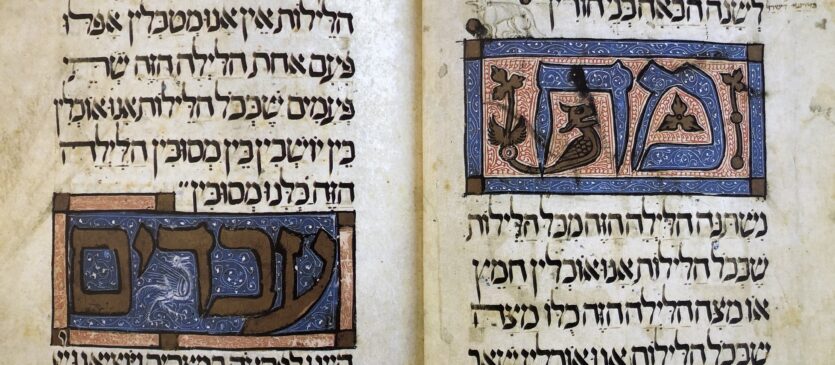 לשנה הבאה בני חורין
מה
נשתנה הלילה הזה מכל הלילות
שבכל הלילות אנו אוכלין חמץ
או מצה הלילה הזה כלו מצה
שבכל הלילות אנו אוכלין שאר
הלילות אין אנו מטבלין אפלו
פעם אחת הלילה הזה שתי
פעמים שבכל הלילות אנו אוכלין
בין יושבין בין מסובין הלילה
הזה כלנו מסובין
עבדים
היינו לפרעה במצרים ויוציאנו